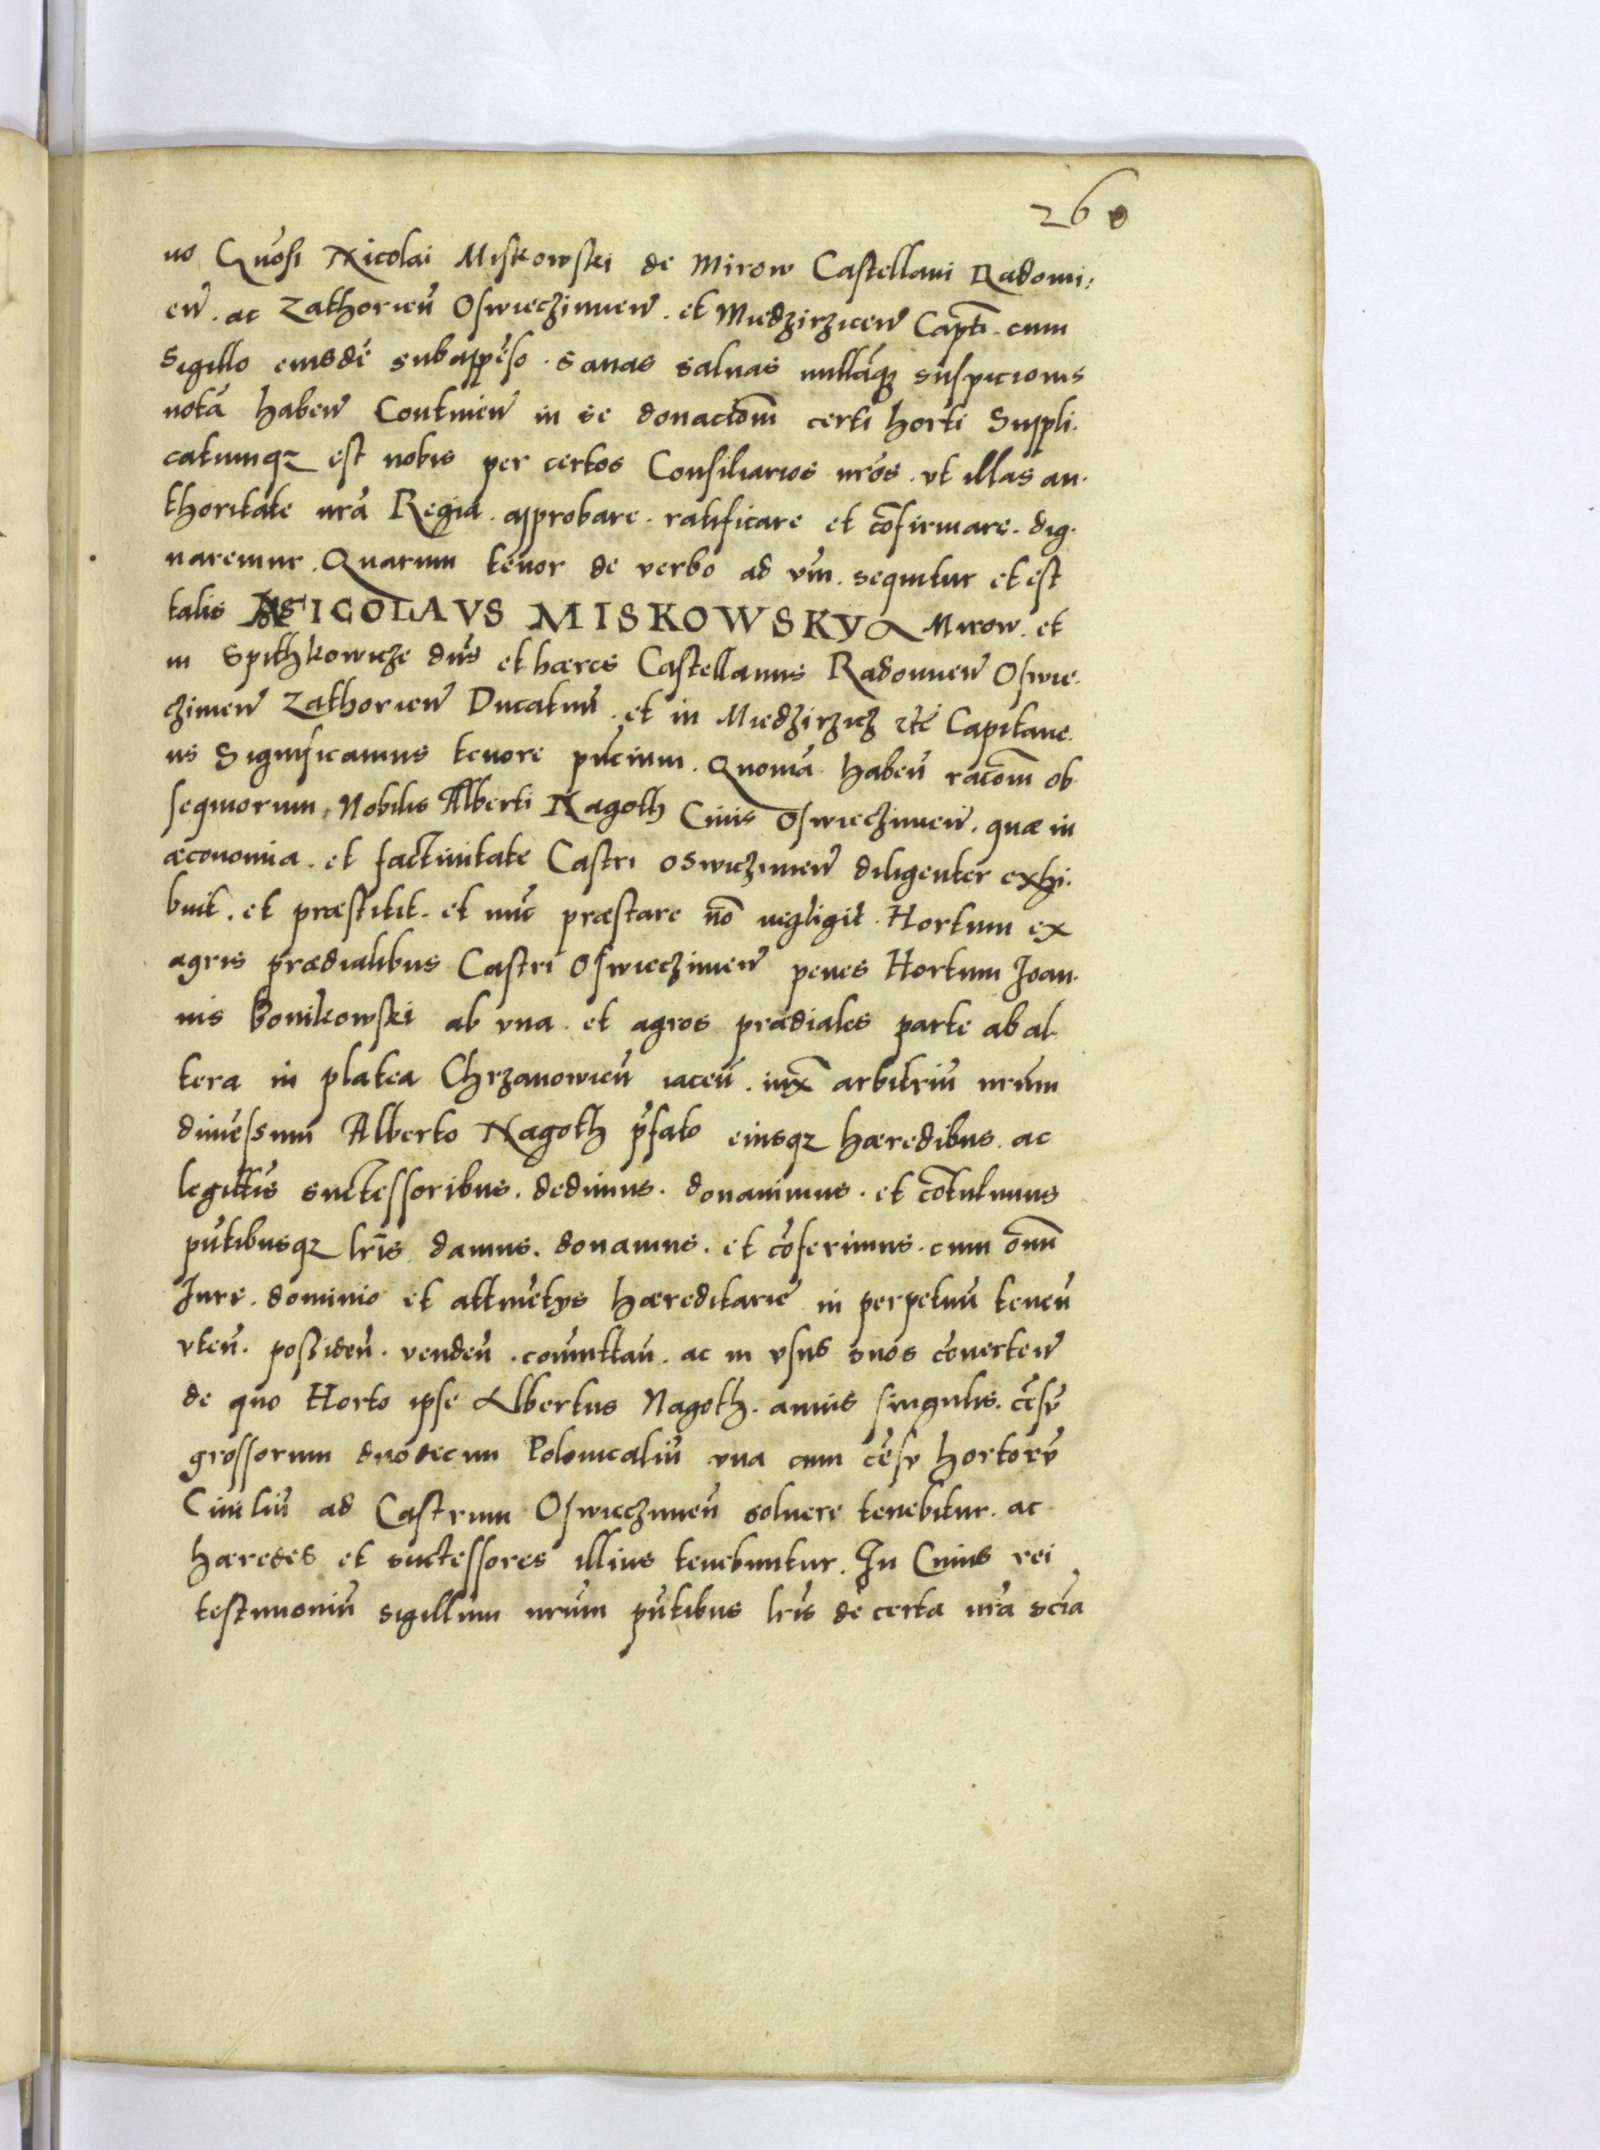 260
no Gnosi Nicolai Miskowski de Mirow Castellani Radomi:
en̄. ac Zathorien̄ Oswieczimen̄. et Miedzirzicen̄ Capt̄i. cum
Sigillo eiusdē subappēso. Sanas saluas nullāq; suspicionis
notā haben̄ Continen̄ in se donaciōm certi horti Suppli.
catumq; est nobis per certos Consiliarios nr̄os. vt illas au.
thoritate nr̄a Regia. approbare. ratificare et cōfirmare. dig.
naremur. Quarum tenor de verbo ad vm̄. sequitur et est
talis NICOLAVS MISKOWSKY a Mirow. et
in Spithkowicze dn̄s et hæres Castellanus Radomien̄ Oswie.
czimen̄ Zathorien̄ Ducatuū. et in Miedzirzicz etc̄ Capitane.
us Significamus tenore pn̄cium. Quoniā haben̄ racōm ob
sequiorum, Nobilis Alberti Nagoth Ciuis Oswieczimen̄. quæ in
œconomia. et factiuitate Castri Oswiczimen̄ diligenter exhi.
buit. et præstitit. et nūc præstare nō negligit. Hortum ex
agris prædialibus Castri Oswieczimen̄ penes Hortum Joan.
nis Bonikowski ab vna. et agros prædiales parte ab al
tera in platea Chrzanowien̄ iacen̄. iux̄ arbitriū nrūm
dimēssum Alberto Nagoth p̄fato eiusq; hæredibus. ac
legittīs successoribus. dedimus. donauimus. et cōtulimus
pn̄tibusq; lr̄is damus. donamus. et cōferimus. cum omī
Iure. dominio et attinētys hæreditarie in perpetuū tenen̄
vten̄. possiden̄. venden̄. comūttan̄. ac in vsus suos cōuerten̄
de quo Horto ipse Albertus Nagoth. annis singulis. cēsū
grossorum duodecim Polonicaliū vna cum cēsū hortorū
Ciuiliū ad Castrum Oswieczimen̄ soluere tenebitur. ac
hæredes et successores illius tenebuntur. In Cuius rei
testimoniū sigillum nrūm pn̄tibus lr̄is de certa nr̄a sc̄ia